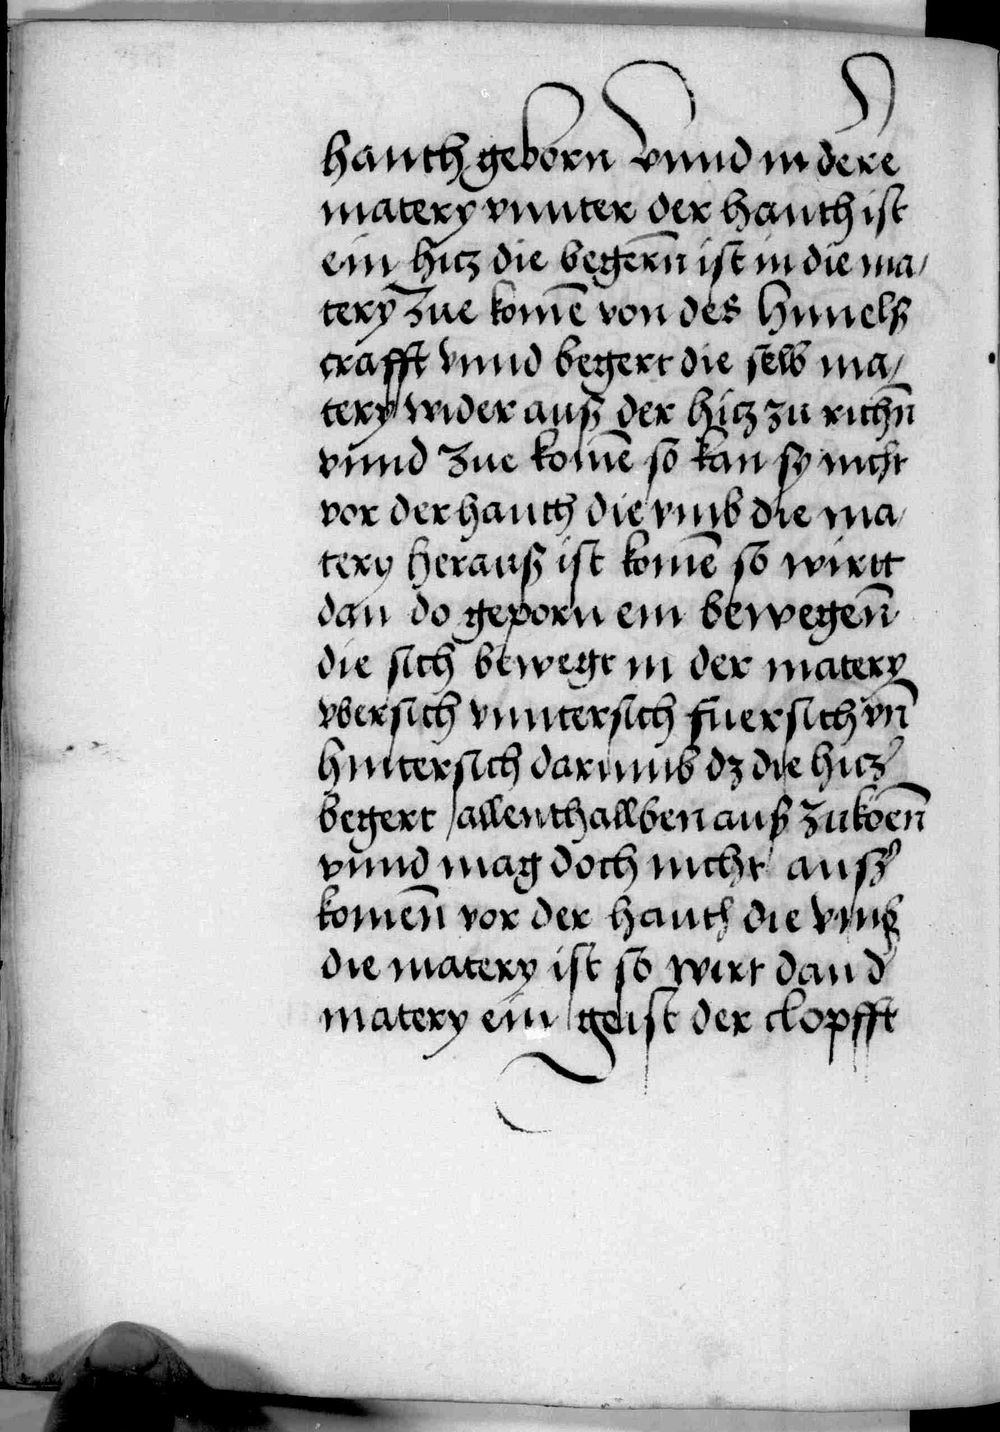 hauth geborn vnnd in dere
matery vnnter der hauth ist
ein hicz die begern̄ ist in die ma/
tery zue komē von des himels
crafft vnnd begert die selb ma/
tery wider auß der hicz zu richn̄
vnnd zue komē so kan sy nicht
vor der hauth die vmb die ma/
tery herauß ist komē so wirtt
dan do geporn ein bewegen̄
die sich bewegt in der matery
vbersich vnntersich fuersich vn̄
hintersich darumb dz die hicz
begert allenthallben auß zukoen̄
vnnd mag doch nicht auß
komen̄ vor der hauth die vmb
die matery ist so wirt dan d'
matery ein geist der clopfft